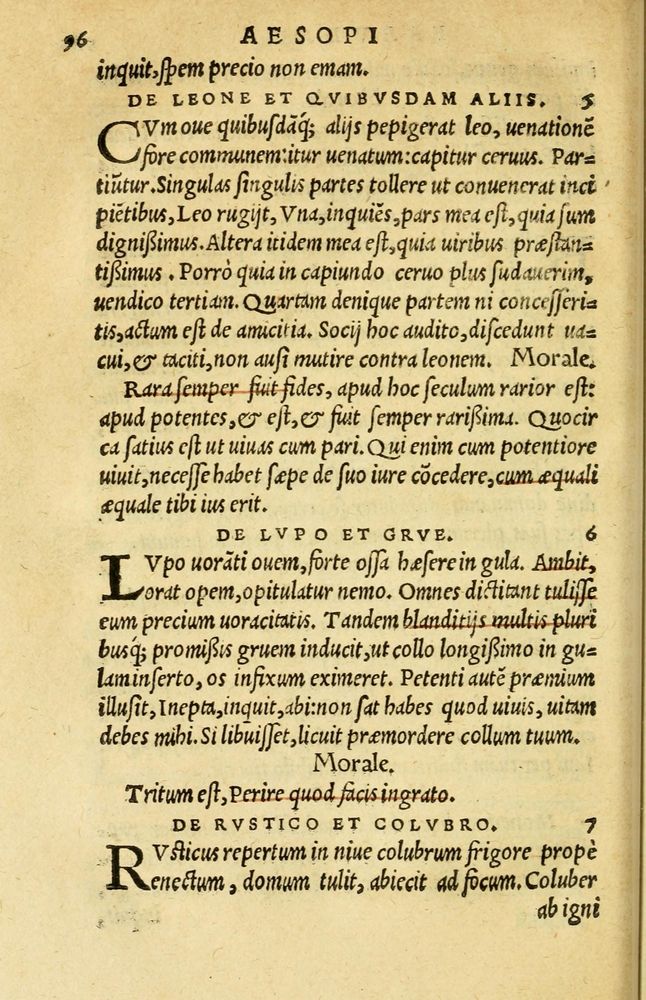 96 AESOPI
inquit, spem precio non emam.
DE LEONE ET QVIBVSDAM ALIIS. 5
CVm oue quibusdāq; alijs pepigerat leo, uenationē
fore communem: itur uenatum: capitur ceruus. Par=
tiūtur. Singulas singulis partes tollere ut conuenerat inci
piētibus, Leo rugijt, Vna, inquiēs, pars mea est, quia sum
dignißimus. Altera itidem mea est, quia uiribus præstan=
tißimus. Porrò quia in capiundo ceruo plus sudauerim,
uendico tertiam. Quartam denique partem ni concesseri=
tis, actum est de amicitia. Socij hoc audito, discedunt ua=
cui, & taciti, non ausi mutire contra leonem. Morale.
Rara semper fuit fides, apud hoc seculum rarior est:
apud potentes, & est, & fuit semper rarißima. Quocir
ca satius est ut uiuas cum pari. Qui enim cum potentiore
uiuit, necesse habet sæpe de suo iure cōcedere, cum æquali
æquale tibi ius erit.
DE LVPO ET GRVE. 6
LVpo uorāti ouem, forte ossa hæsere in gula. Ambit,
orat opem, opitulatur nemo. Omnes dictitant tulisse
eum precium uoracitatis. Tandem blanditijs multis pluri
busq; promißis gruem inducit, ut collo longißimo in gu=
lam inserto, os infixum eximeret. Petenti autē præmium
illusit, Inepta, inquit, abi: non sat habes quod uiuis, uitam
debes mihi. Si libuisset, licuit præmordere collum tuum.
Morale.
Tritum est, Perire quod facis ingrato.
DE RVSTICO ET COLVBRO. 7
RVsticus repertum in niue colubrum frigore propè
enectum, domum tulit, abiecit ad focum. Coluber
ab igni